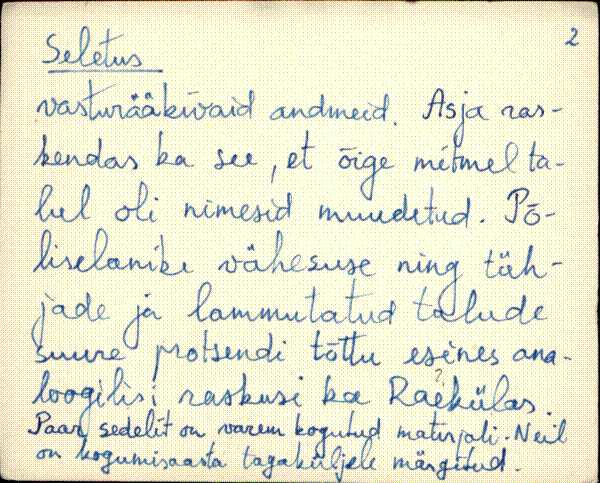 2
Seletus
vasturääkivaid andmeid. Asja ras-
kendas ka see, et õige mitmel ta-
lul oli nimesid muudetud. Põ-
liselanike vähesuse ning tüh-
jade ja lammutatud talude
suure protsendi tõttu esines ana-
loogilisi raskusi ka Raekülas.
?
Paar sedelit on varem kogutud materjali. Neil
on kogumisaasta tagaküljele märgitud.